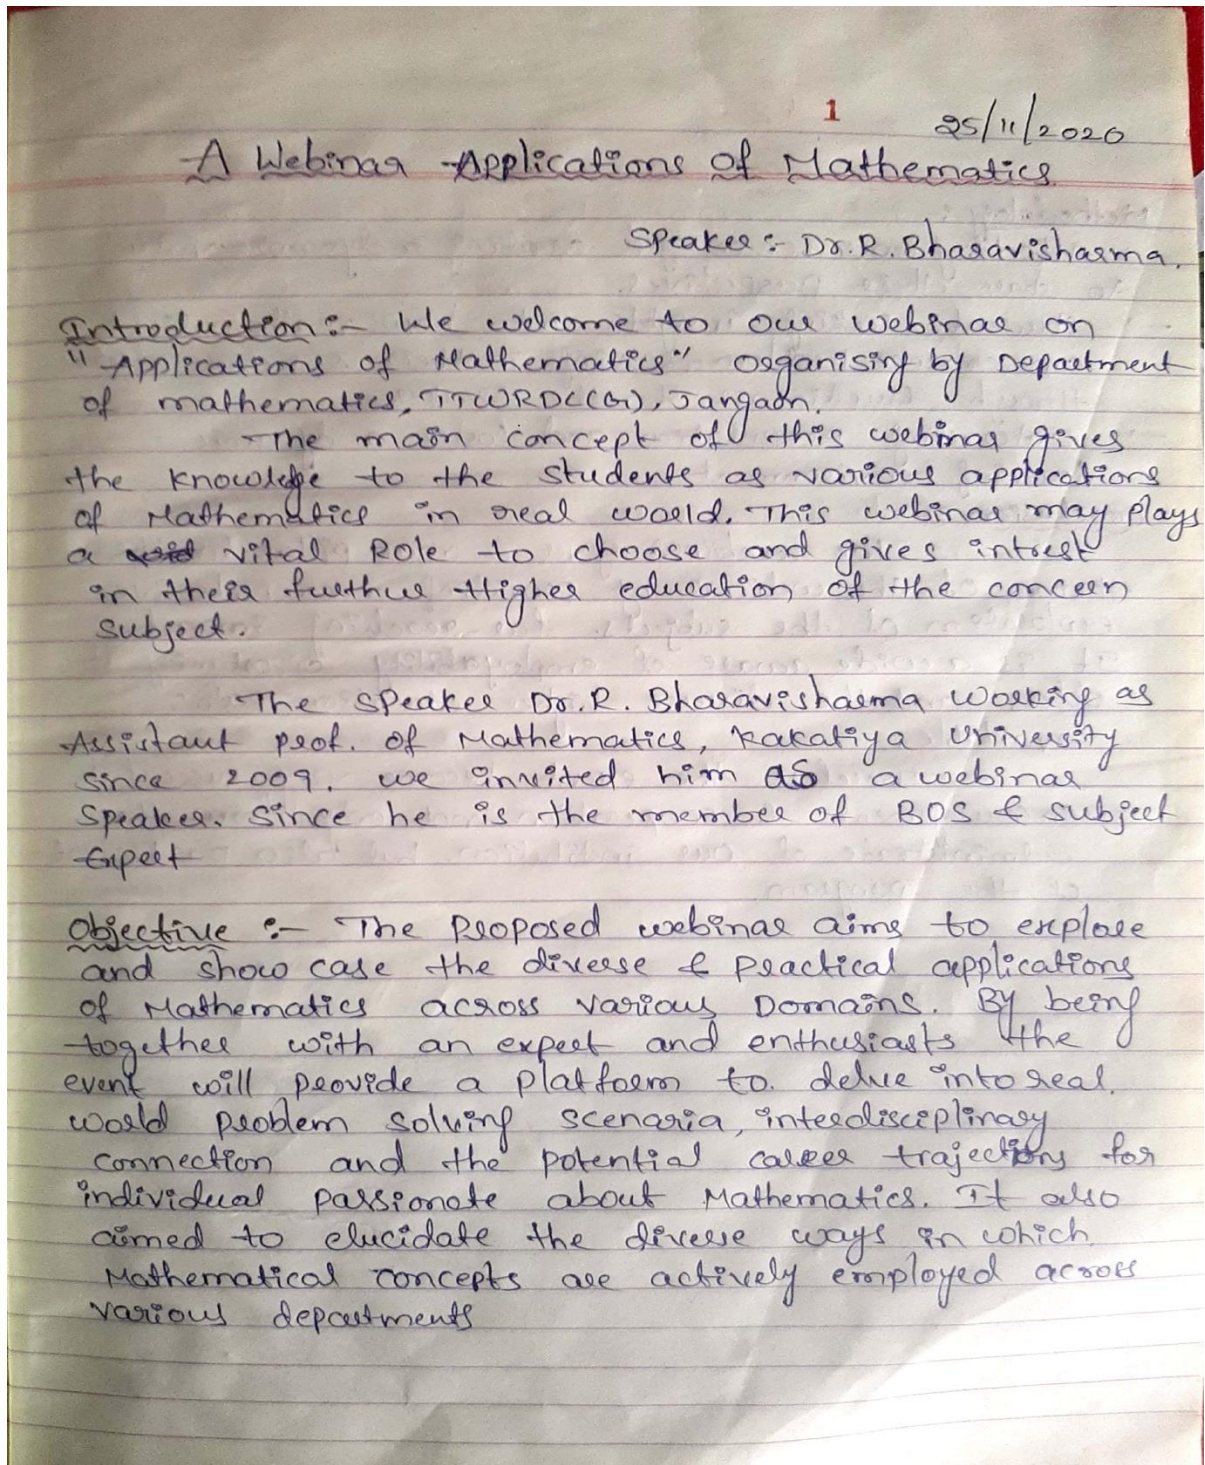 1
25/11/2020
A Webinar Applications of Mathematics
Speaker :- Dr. R. Bharavisharma.
Introduction :- We welcome to our webinar on
"Applications of Mathematics" organising by Department
of mathematics, TTWRDC(G), Jangaon.
The main concept of this webinar gives
the knowledge to the students as various applications
of Mathematics in real world. This webinar may plays
a vital Role to choose and gives intrest
in their further Higher education of the concern
subject.
The speaker Dr. R. Bharavisharma working as
Assistant prof. of Mathematics, Kakatiya University
since 2009. we invited him as a webinar
Speaker. Since he is the member of BOS & subject
Expert
Objective :- The Proposed webinar aims to explore
and show case the diverse & practical applications
of Mathematics across various Domains. By being
together with an expert and enthusiasts the
event will provide a platform to. delve into real.
world problem solving scenaria, interdisciplinary
connection and the potential career trajections for
individual passionate about Mathematics. It also
aimed to elucidate the diverse ways in which
Mathematical concepts are actively employed across
various departments